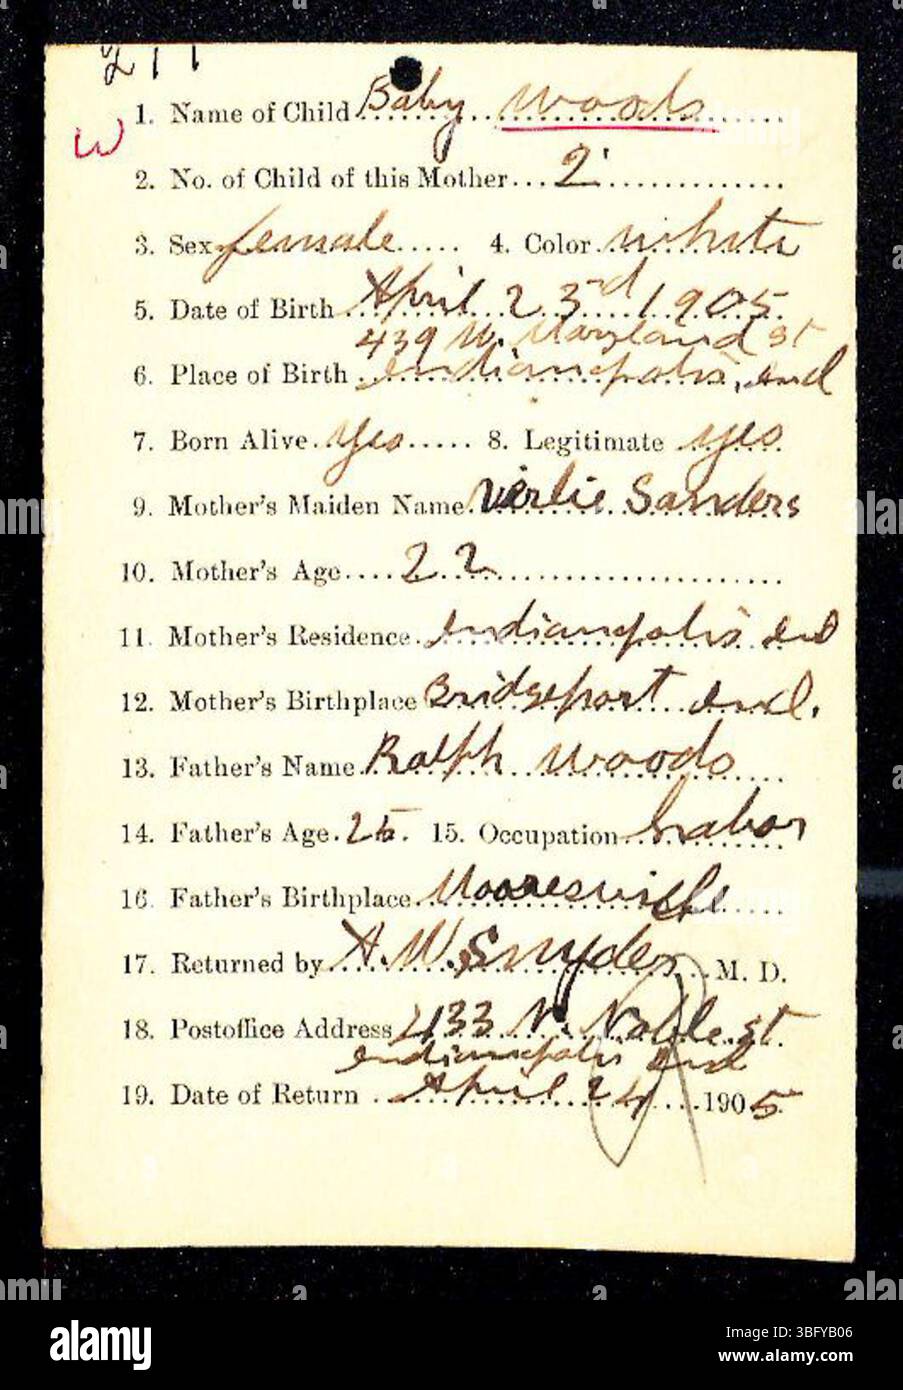 211
1. Name of Child Baby Woods
W
2. No. of Child of this Mother 2
3. Sex female 4. Color white
5. Date of Birth April 23rd 1905
439 W. Maryland St
6. Place of Birth Indianapolis, Ind
7. Born Alive yes 8. Legitimate yes
9. Mother's Maiden Name Verlie Sanders
10. Mother's Age 22
11. Mother's Residence Indianapolis Ind
12. Mother's Birthplace Bridgeport Ind.
13. Father's Name Ralph Woods
14. Father's Age 25. 15. Occupation Labor
16. Father's Birthplace Mooresville
17. Returned by A. W. Snyder M. D.
18. Postoffice Address 2133 N. Noble St.
Indianapolis Ind
19. Date of Return April 24 1905
alamy
Image ID: 3BFYB06
www.alamy.com